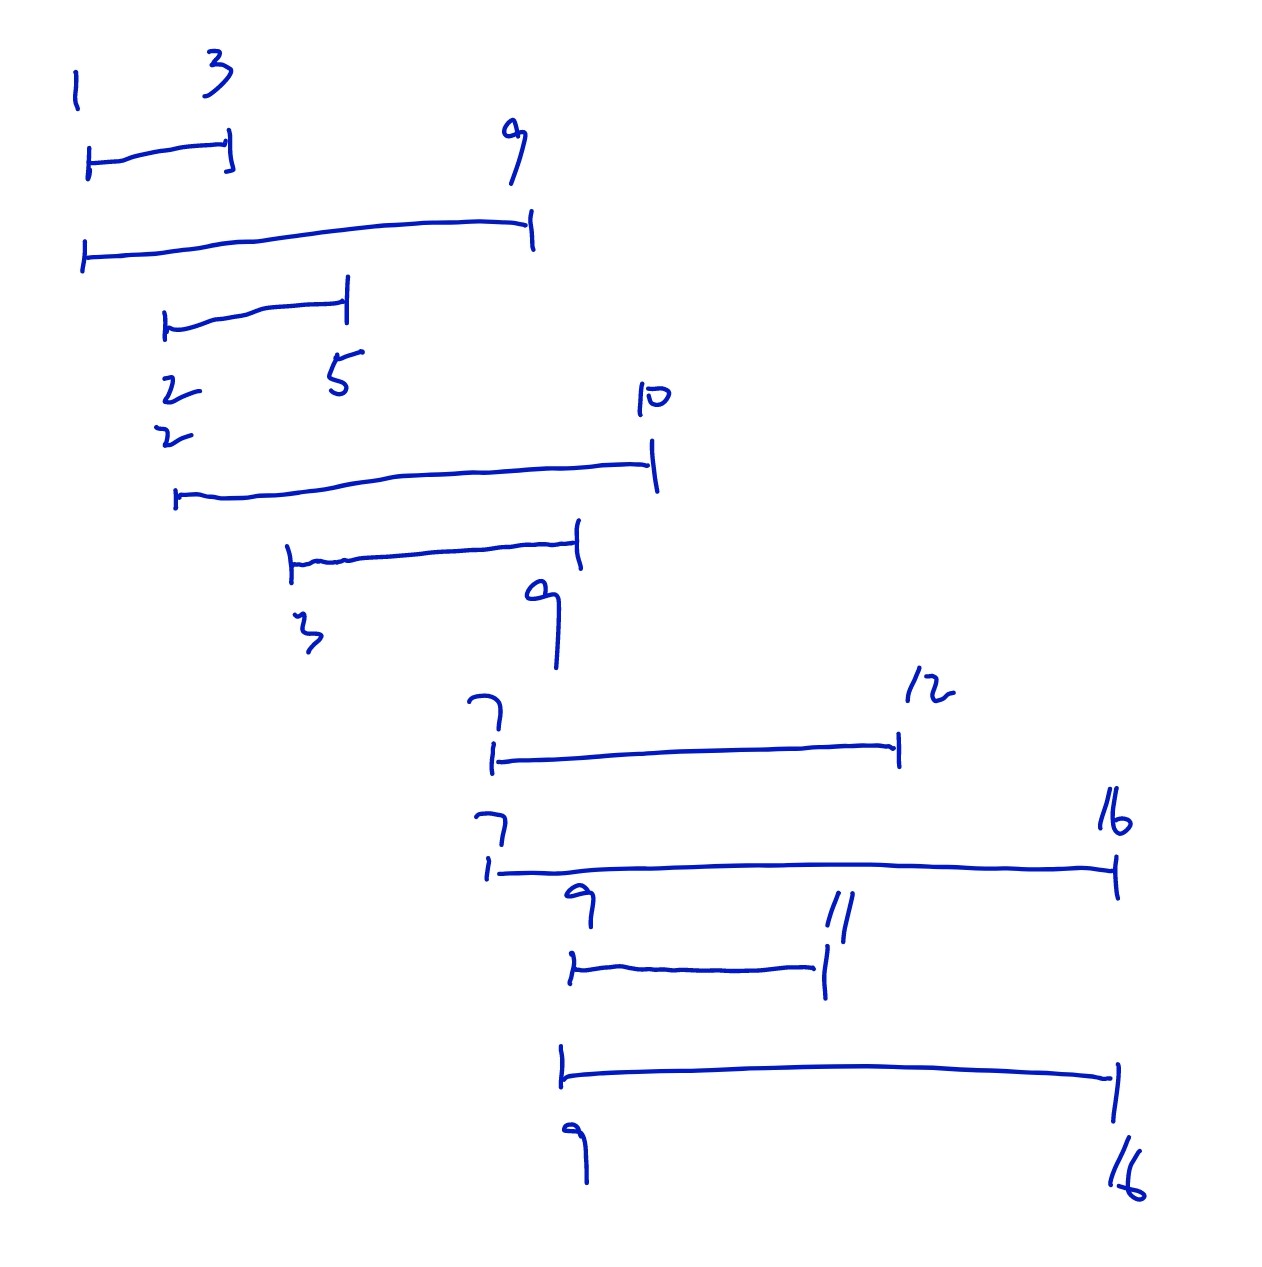 1 3
9
2 5
2 10
3 9
7 12
7 16
9 11
9 16